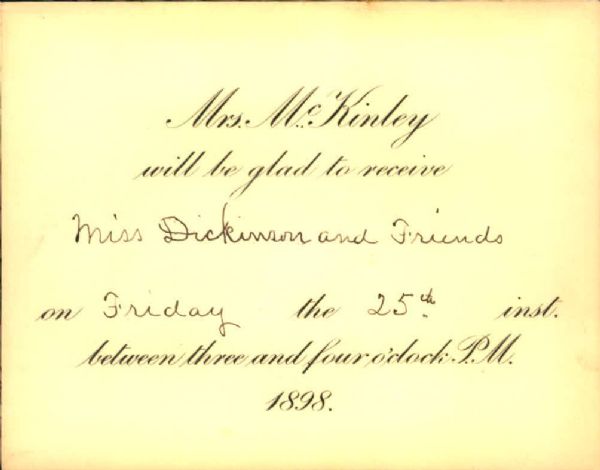 Mrs. McKinley
will be glad to receive
Miss Dickinson and Friends
on Friday the 25th. inst.
between three and four o'clock P.M.
1898.